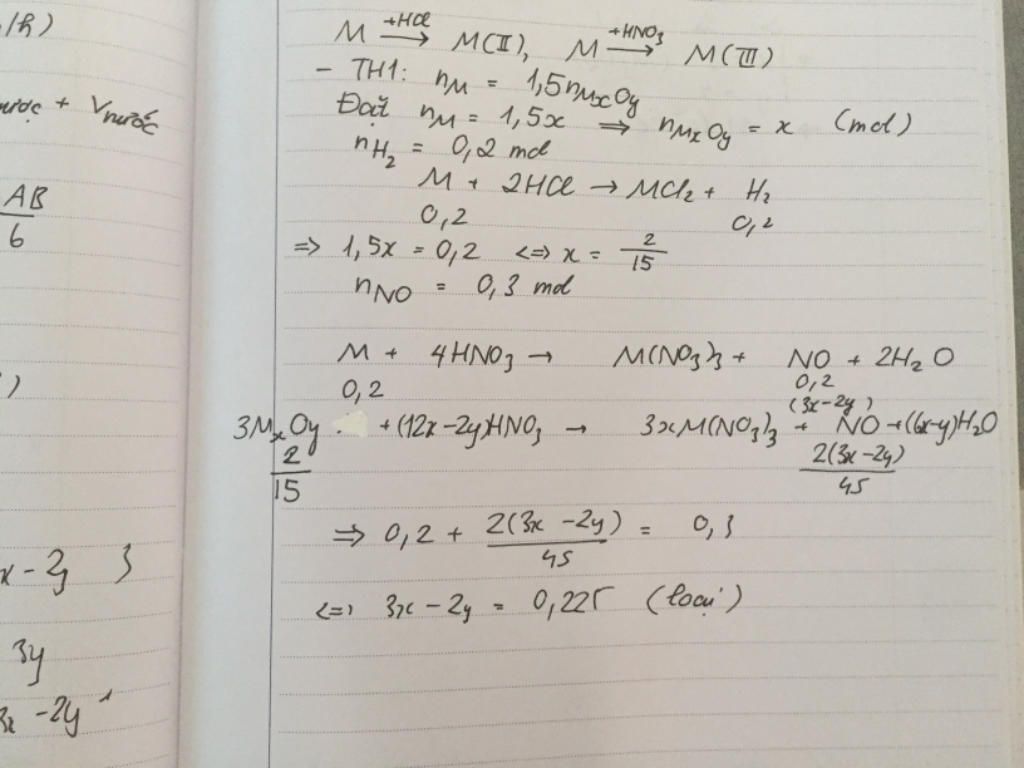 /h)
nước + Vnước
AB
6
)
x - 2y }
3y
3x - 2y
M +HCl → M(II), M +HNO3 → M(III)
- TH1: nM = 1,5nMxOy
Đặt nM = 1,5x ⇒ nMxOy = x (mol)
nH2 = 0,2 mol
M + 2HCl → MCl2 + H2
0,2 0,2
⇒ 1,5x = 0,2 <=> x = 2/15
nNO = 0,3 mol
M + 4HNO3 → M(NO3)3 + NO + 2H2O
0,2 0,2
(3x-2y)
3MxOy + (12x-2y)HNO3 → 3xM(NO3)3 + NO + (6x-y)H2O
2/15 2(3x-2y)/45
⇒ 0,2 + 2(3x-2y)/45 = 0,3
<=> 3x - 2y = 0,225 (loại)